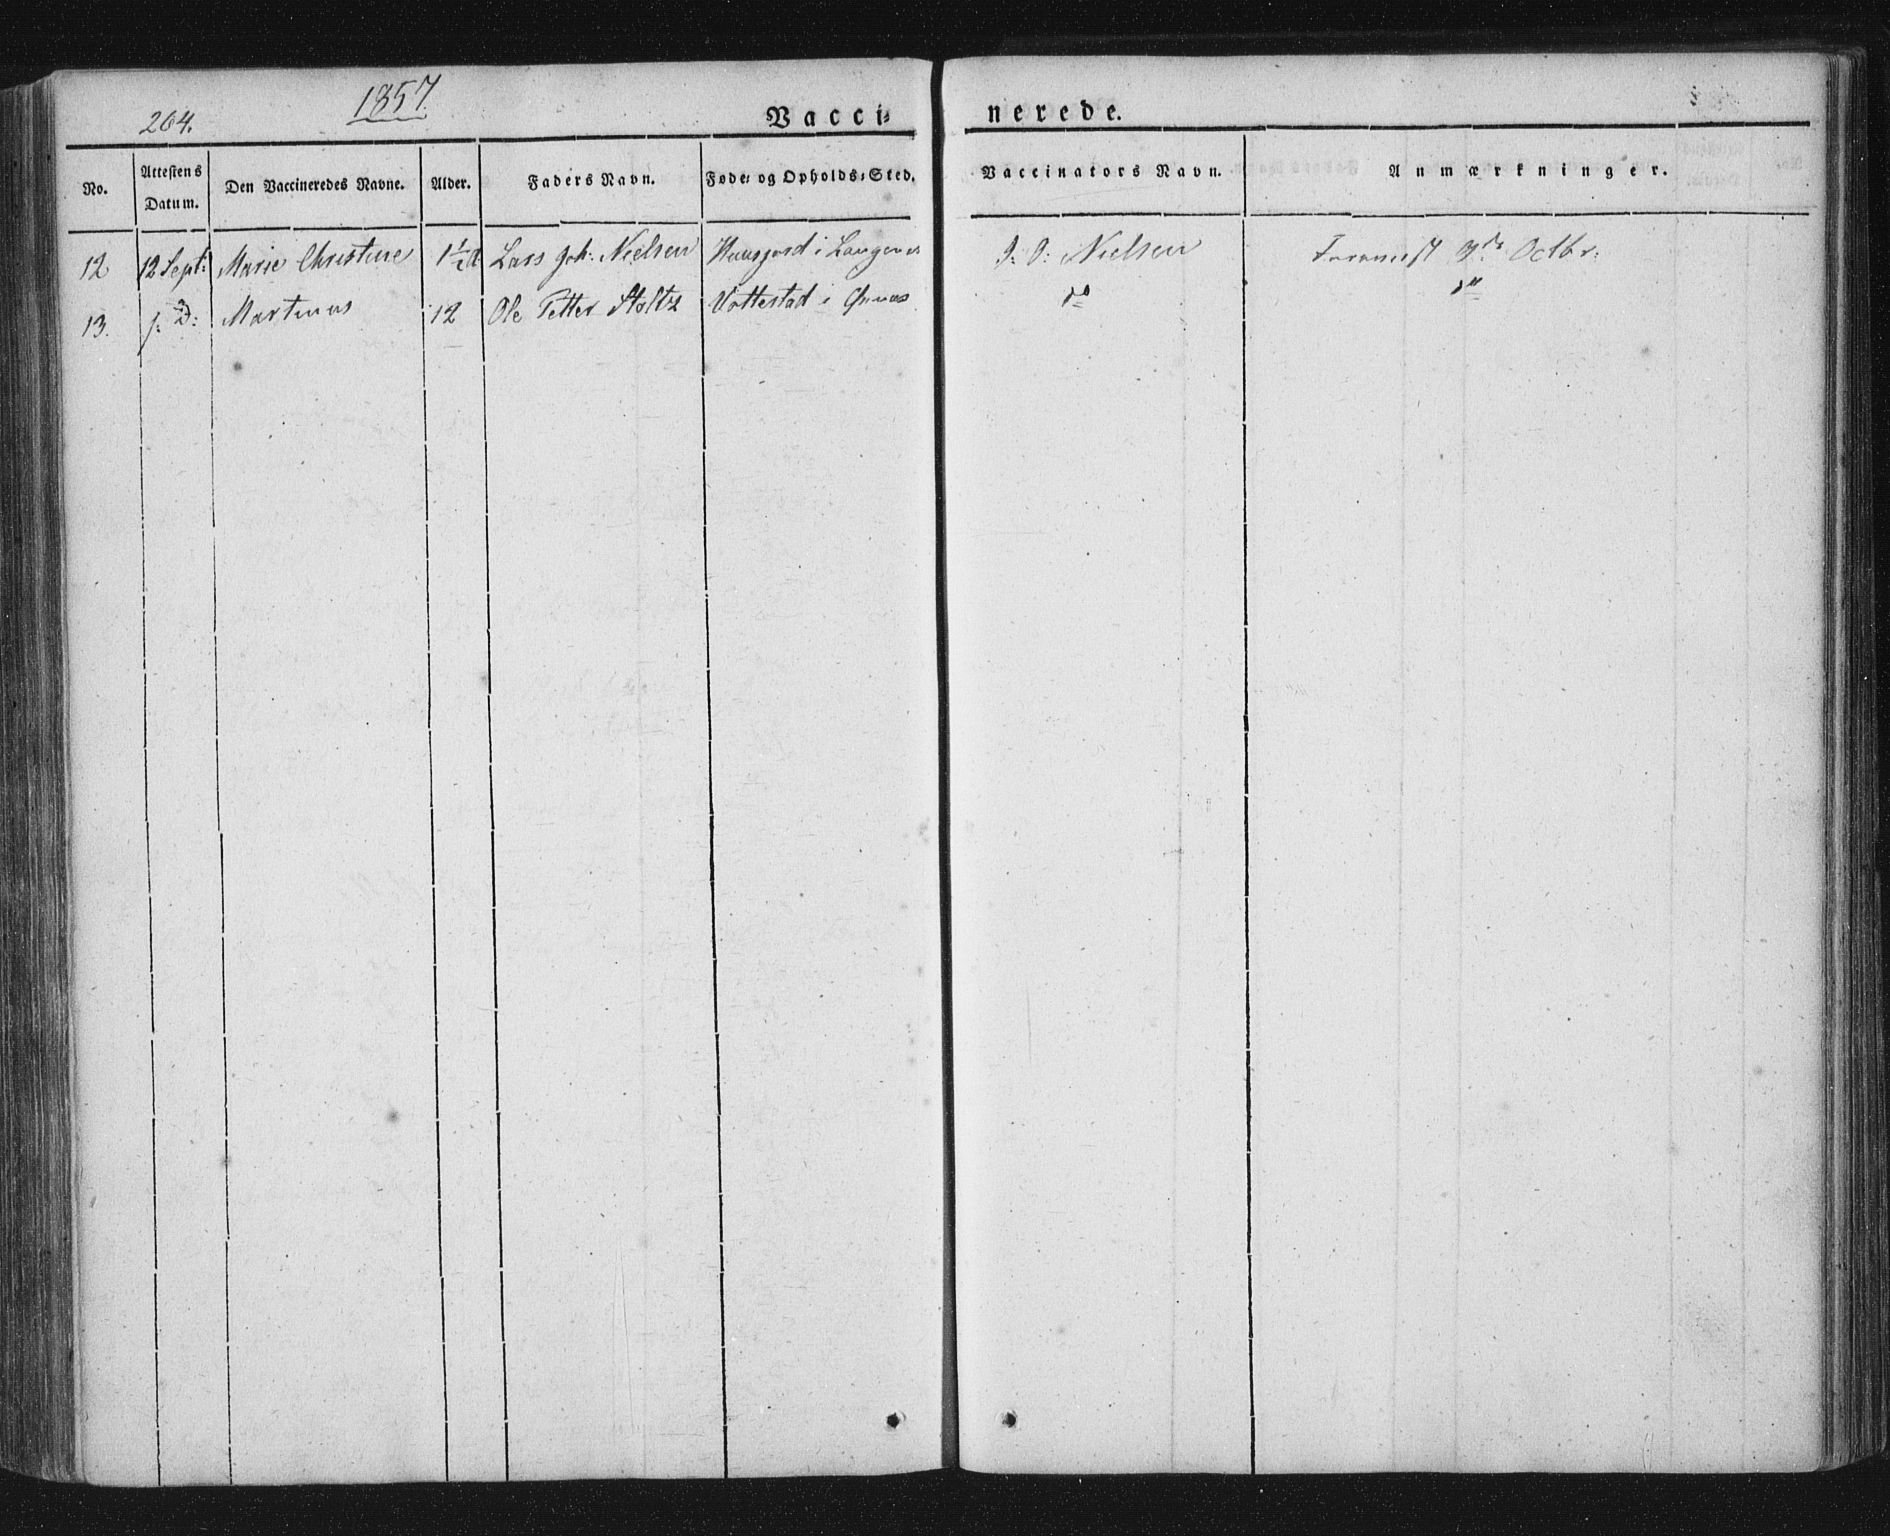 264.
1857.
Vacci-
nerede.
No.
Attestens Datum.
Den Vaccineredes Navne.
Alder.
Faders Navn.
Føde- og Opholds-Sted.
Vaccinators Navn.
Anmærkninger.
12 12 Sept: Marie Christine 1½ A Lars Joh: Nielsen i J: O: Nielsen 3die Octbr:
13. s: D: Martinus 12 Ole Petter Stoltz Vottestad i do do